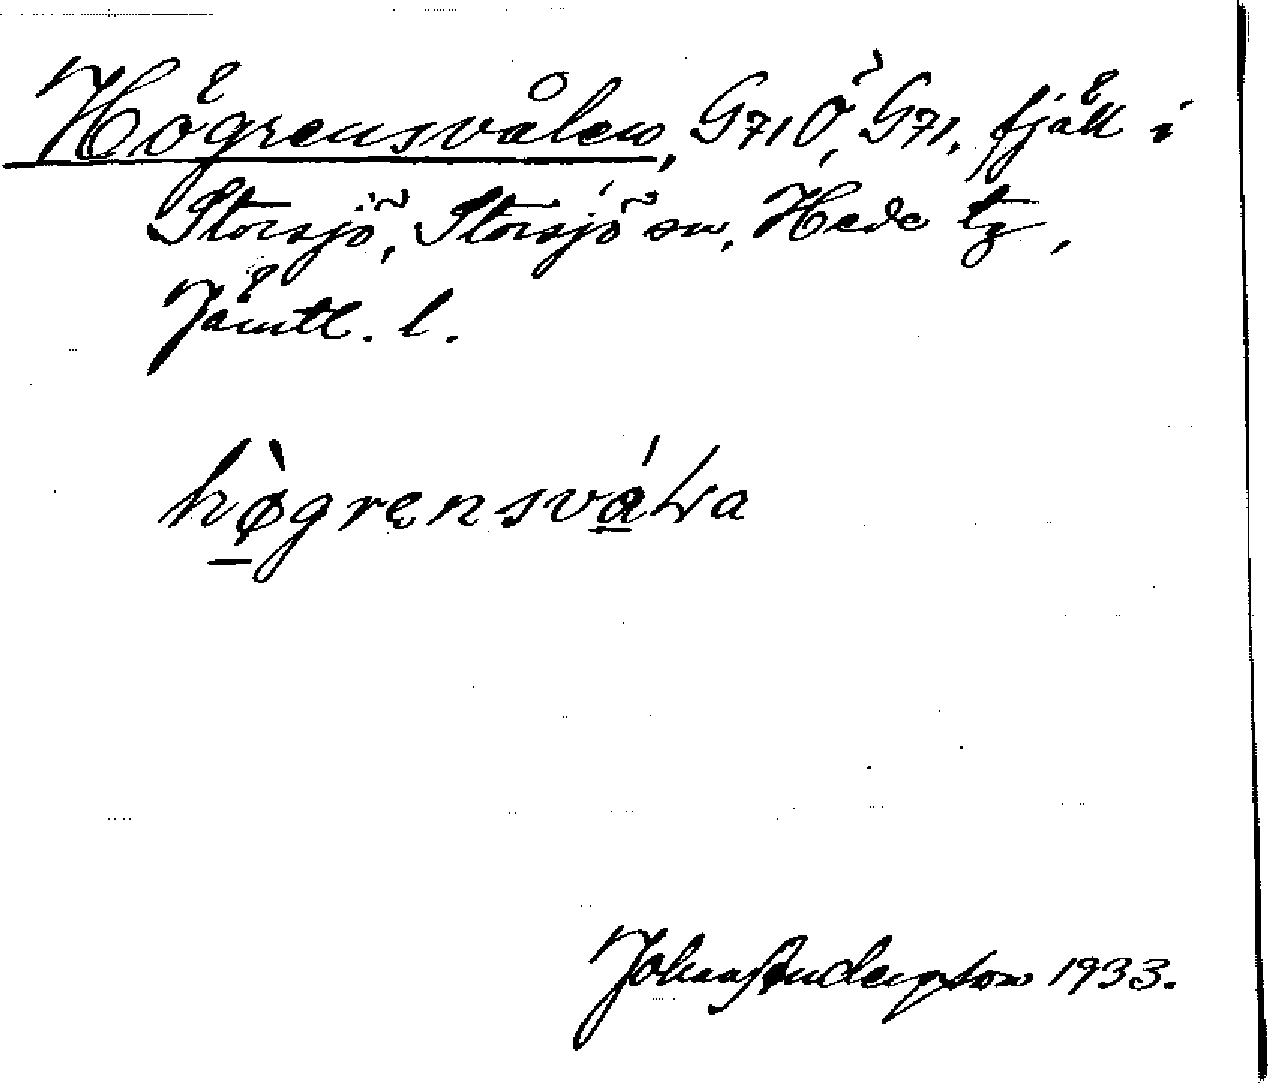 Högrensvålen, G71Ö, G71, fjäll i
Storsjö, Storsjö sn, Hede tg,
Jämtl. l.
hø̀grensválːa
Johan Anderson 1933.